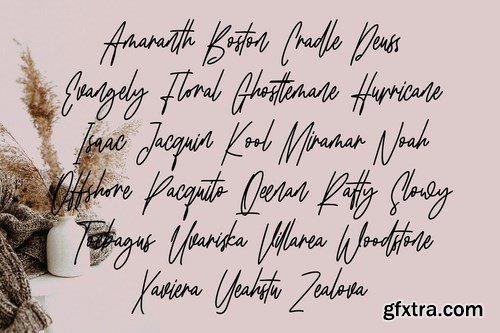 Amaranth Boston Cradle Deuss
Evangely Floral Ghosttemane Hurricane
Isaac Jacquin Kool Miramar Noah
Offshore Pacquito Qeenan Rafty Slowy
Torbagus Uvariska Villarea Woodstone
Xaviera Yeahstu Zealova
gfxtra.com